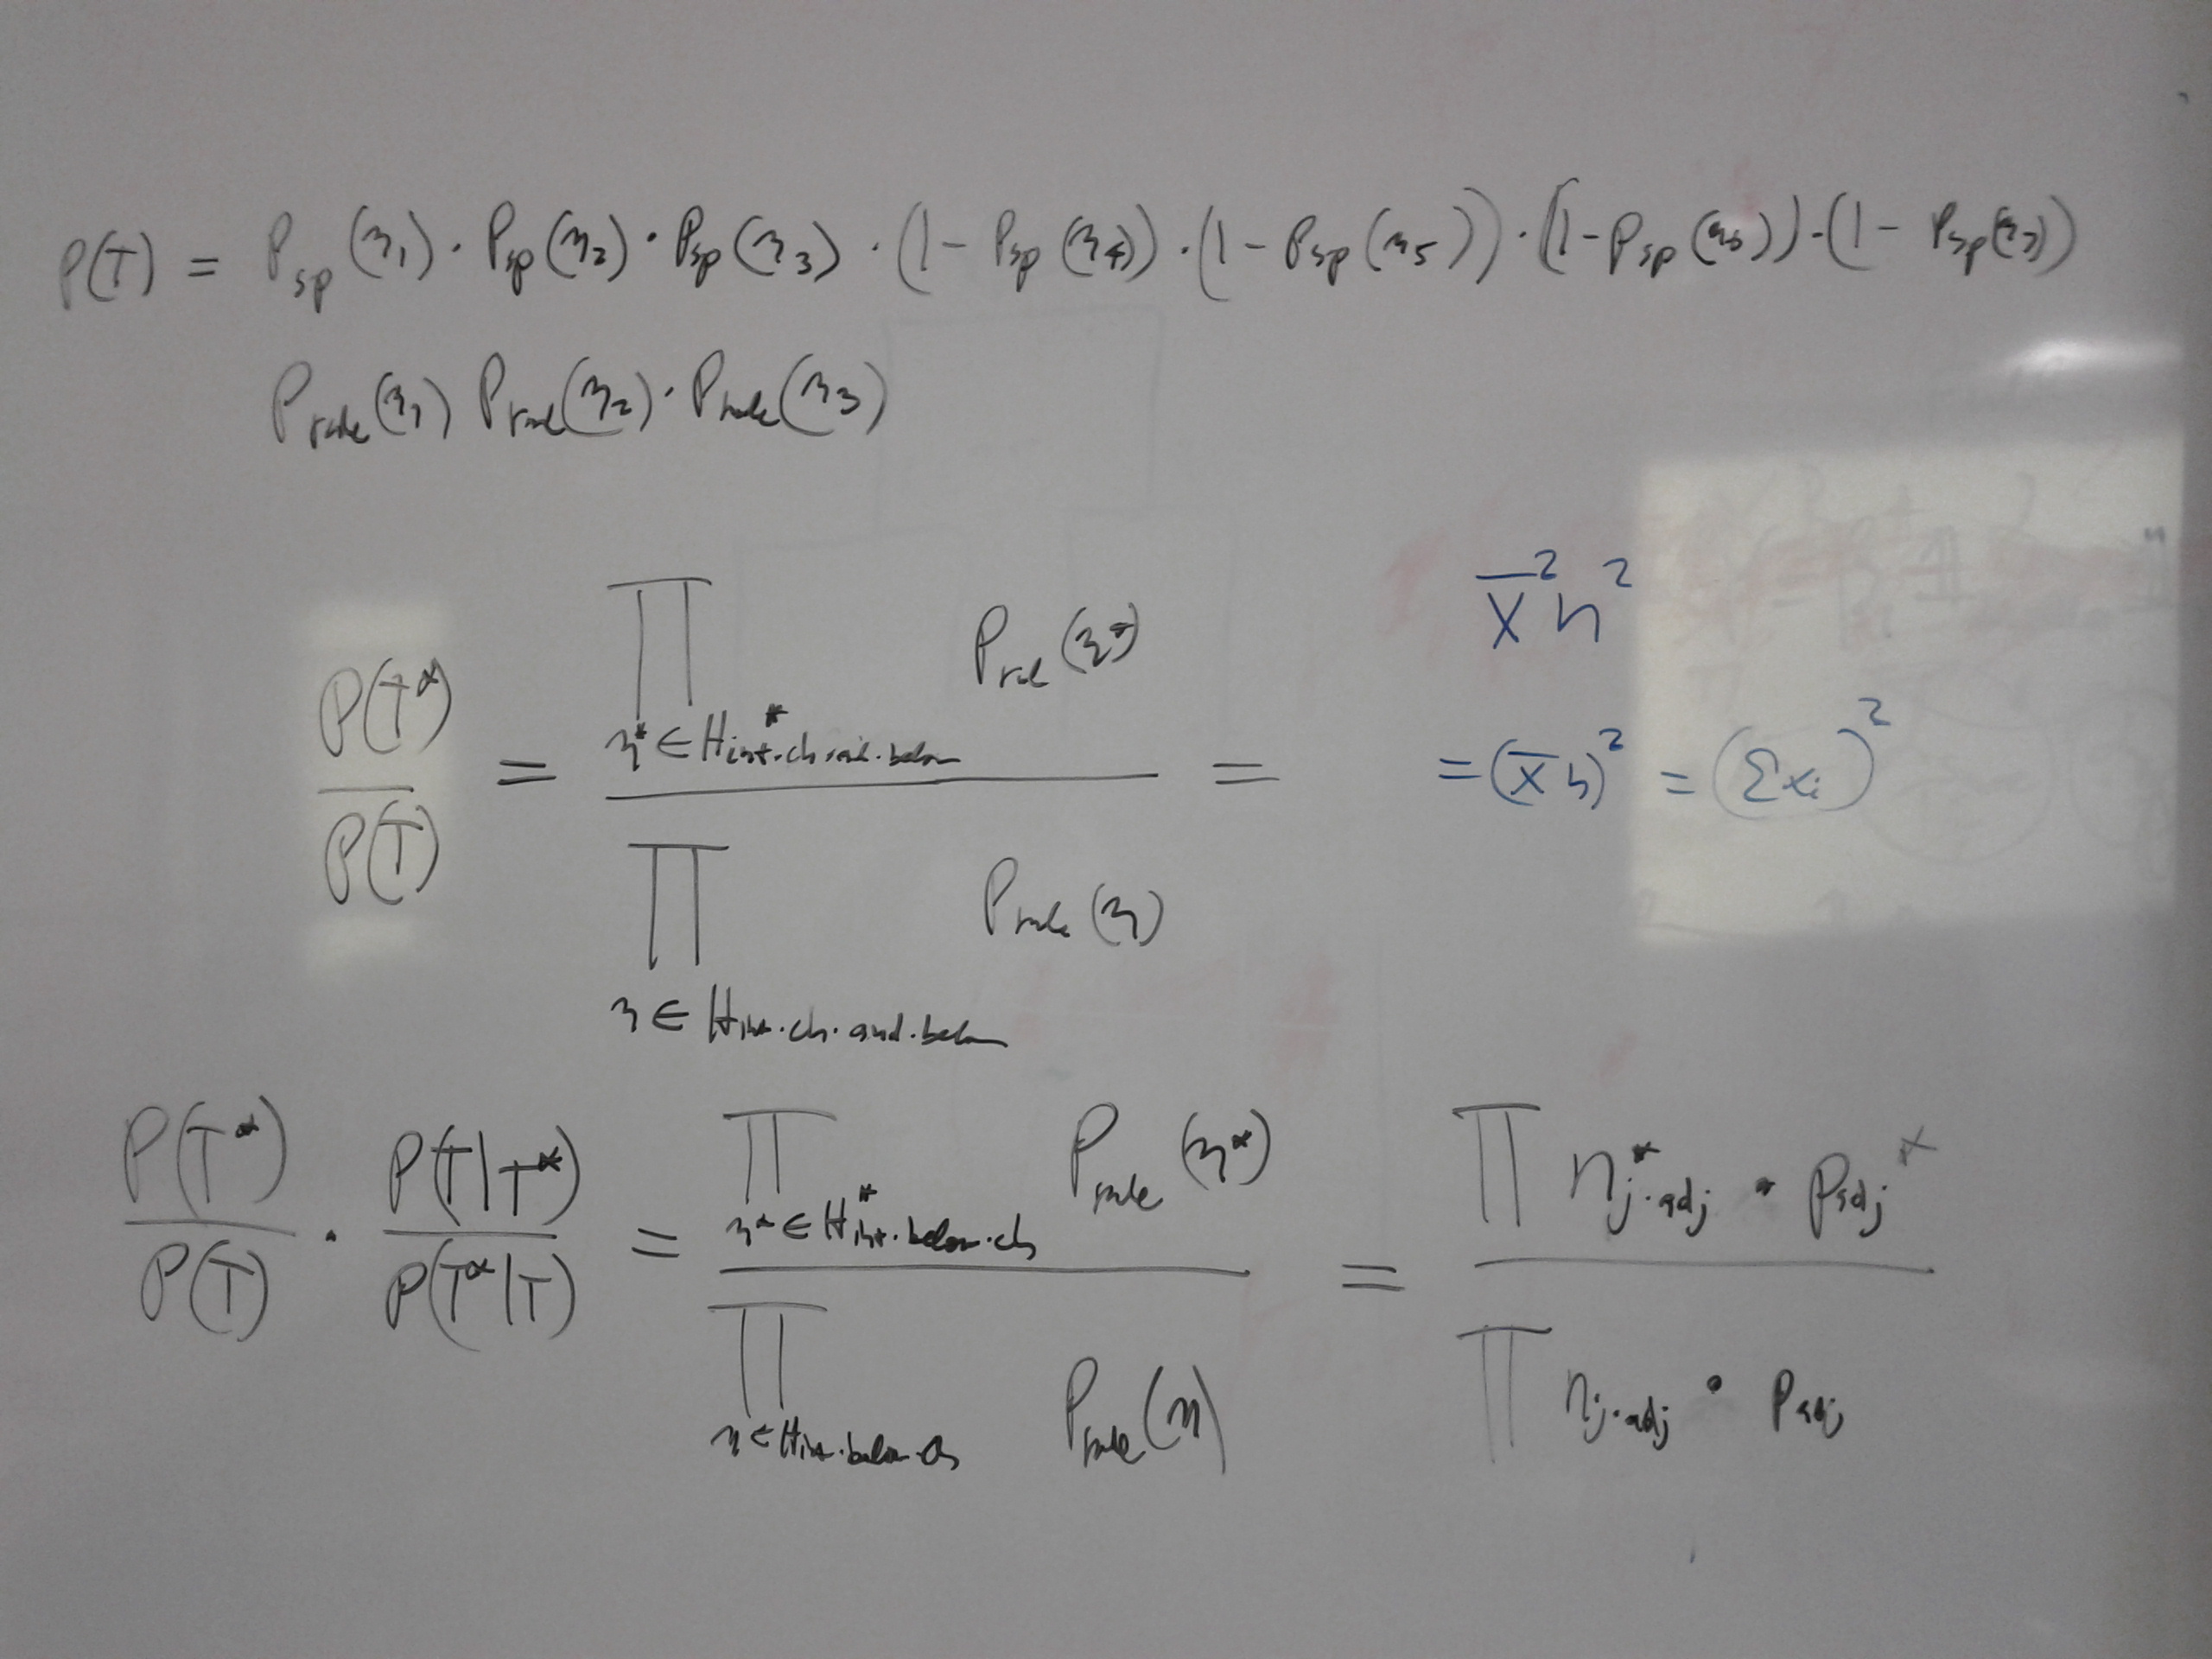 P(T) = P_sp(η_1) · P_sp(η_2) · P_sp(η_3) · (1 - P_sp(η_4)) · (1 - P_sp(η_5)) · (1 - P_sp(η_6)) · (1 - P_sp(η_7))
P_rule(η_1) P_rule(η_2) · P_rule(η_3)
P(T*) / P(T) = ∏_{η* ∈ H*_int.ch.and.below} P_rule(η*) / ∏_{η ∈ H_int.ch.and.below} P_rule(η) =
x̄² n²
= (x̄ n)² = (Σ x_i)²
P(T*) / P(T) · P(T|T*) / P(T*|T) = ∏_{η* ∈ H*_int.below.ch} P_rule(η*) / ∏_{η ∈ H_int.below.ch} P_rule(η) = ∏ n*_j.adj · p_adj* / ∏ n_j.adj · p_adj